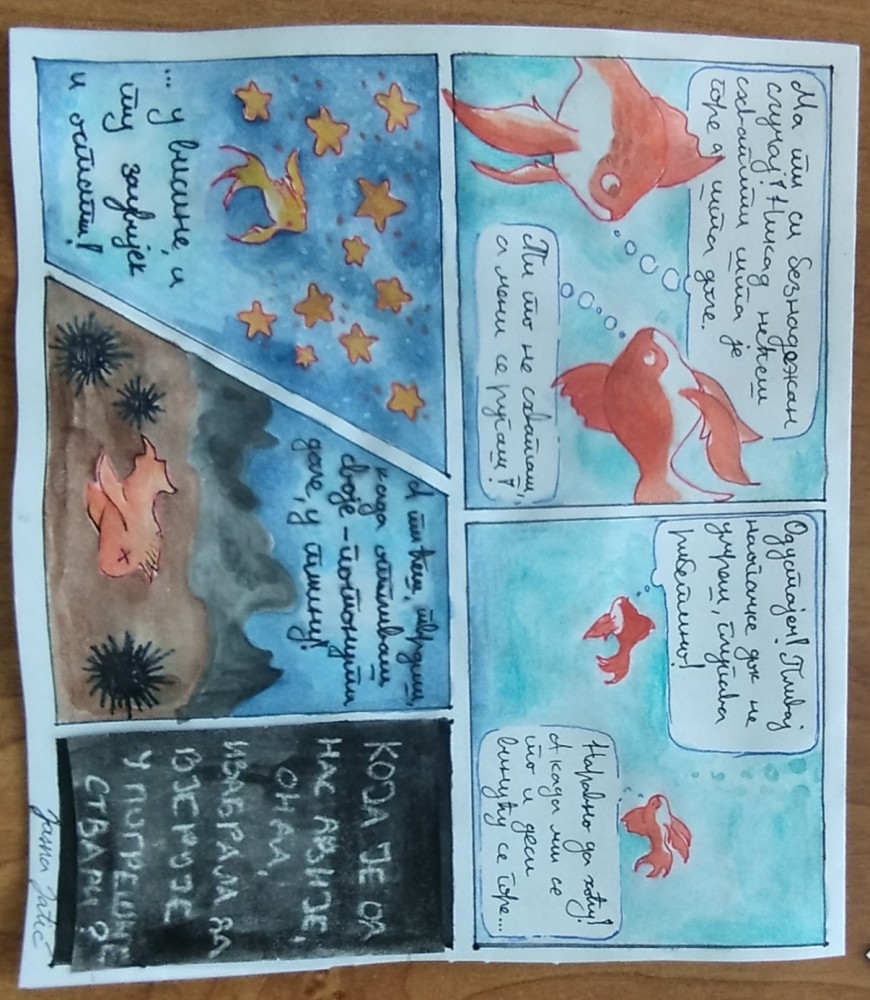 Ма ти си безнадежан
случај! Никад нећеш
схватити шта је
горе а шта доле.
Ти то не схваташ,
а мени се ругаш?
Одустајем! Пливај
наопачке док не
умреш, глупава
рибетино!
Наравно да хоћу!
А када ми се
то и деси
винућу се горе...
... у висине, и
ту заувијек
и остати!
А ти ћеш, тврдим,
када отпливаш
своје - потонути
доле, у тмину!
КОЈА ЈЕ ОД
НАС ДВИЈЕ,
ОНДА,
ИЗАБРАЛА ДА
ВЈЕРУЈЕ
У ПОГРЕШНЕ
СТВАРИ?
Jasna Jatić